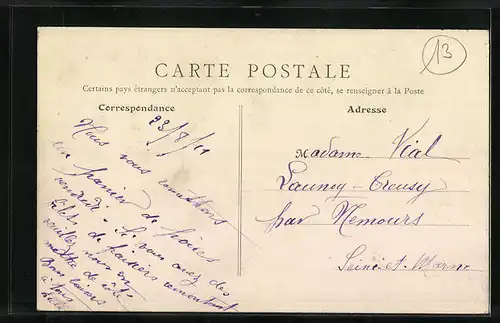 13
CARTE POSTALE
Certains pays étrangers n'acceptant pas la correspondance de ce côté, se renseigner à la Poste
Correspondance
Adresse
23/8/11
Nous vous remettrons
un panier de poires
vendredi. Si vous avez des
de paniers
veuillez nous en
mettre de côté
Bons baisers
à tous
Madame Vial
Launoy-Creusy
par Nemours
Seine et Marne